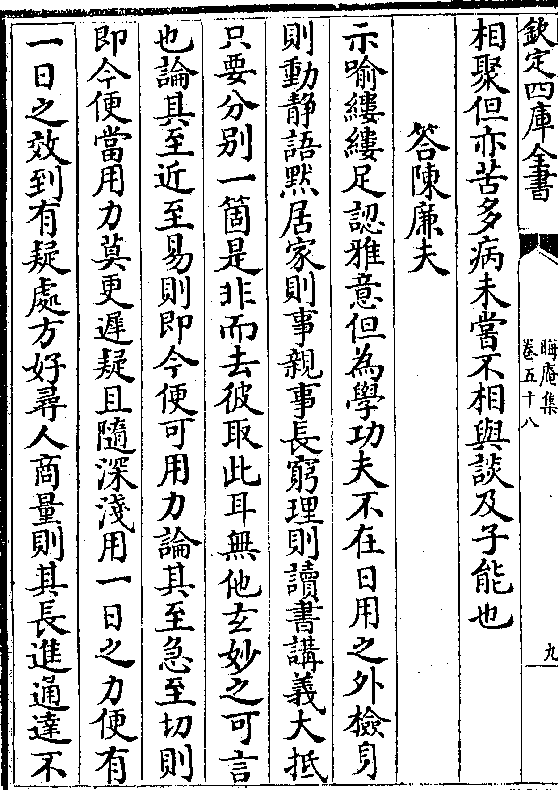 欽定四庫全書
晦庵集
卷五十八
九
相聚但亦苦多病未嘗不相與談及子能也
答陳廉夫
示喻縷縷足認雅意但為學功夫不在日用之外檢身
則動静語默居家則事親事長窮理則讀書講義大抵
只要分别一箇是非而去彼取此耳無他玄妙之可言
也論其至近至易則即今便可用力論其至急至切則
即今便當用力莫更遲疑且隨深淺用一日之力便有
一日之效到有疑處方好尋人商量則其長進通達不